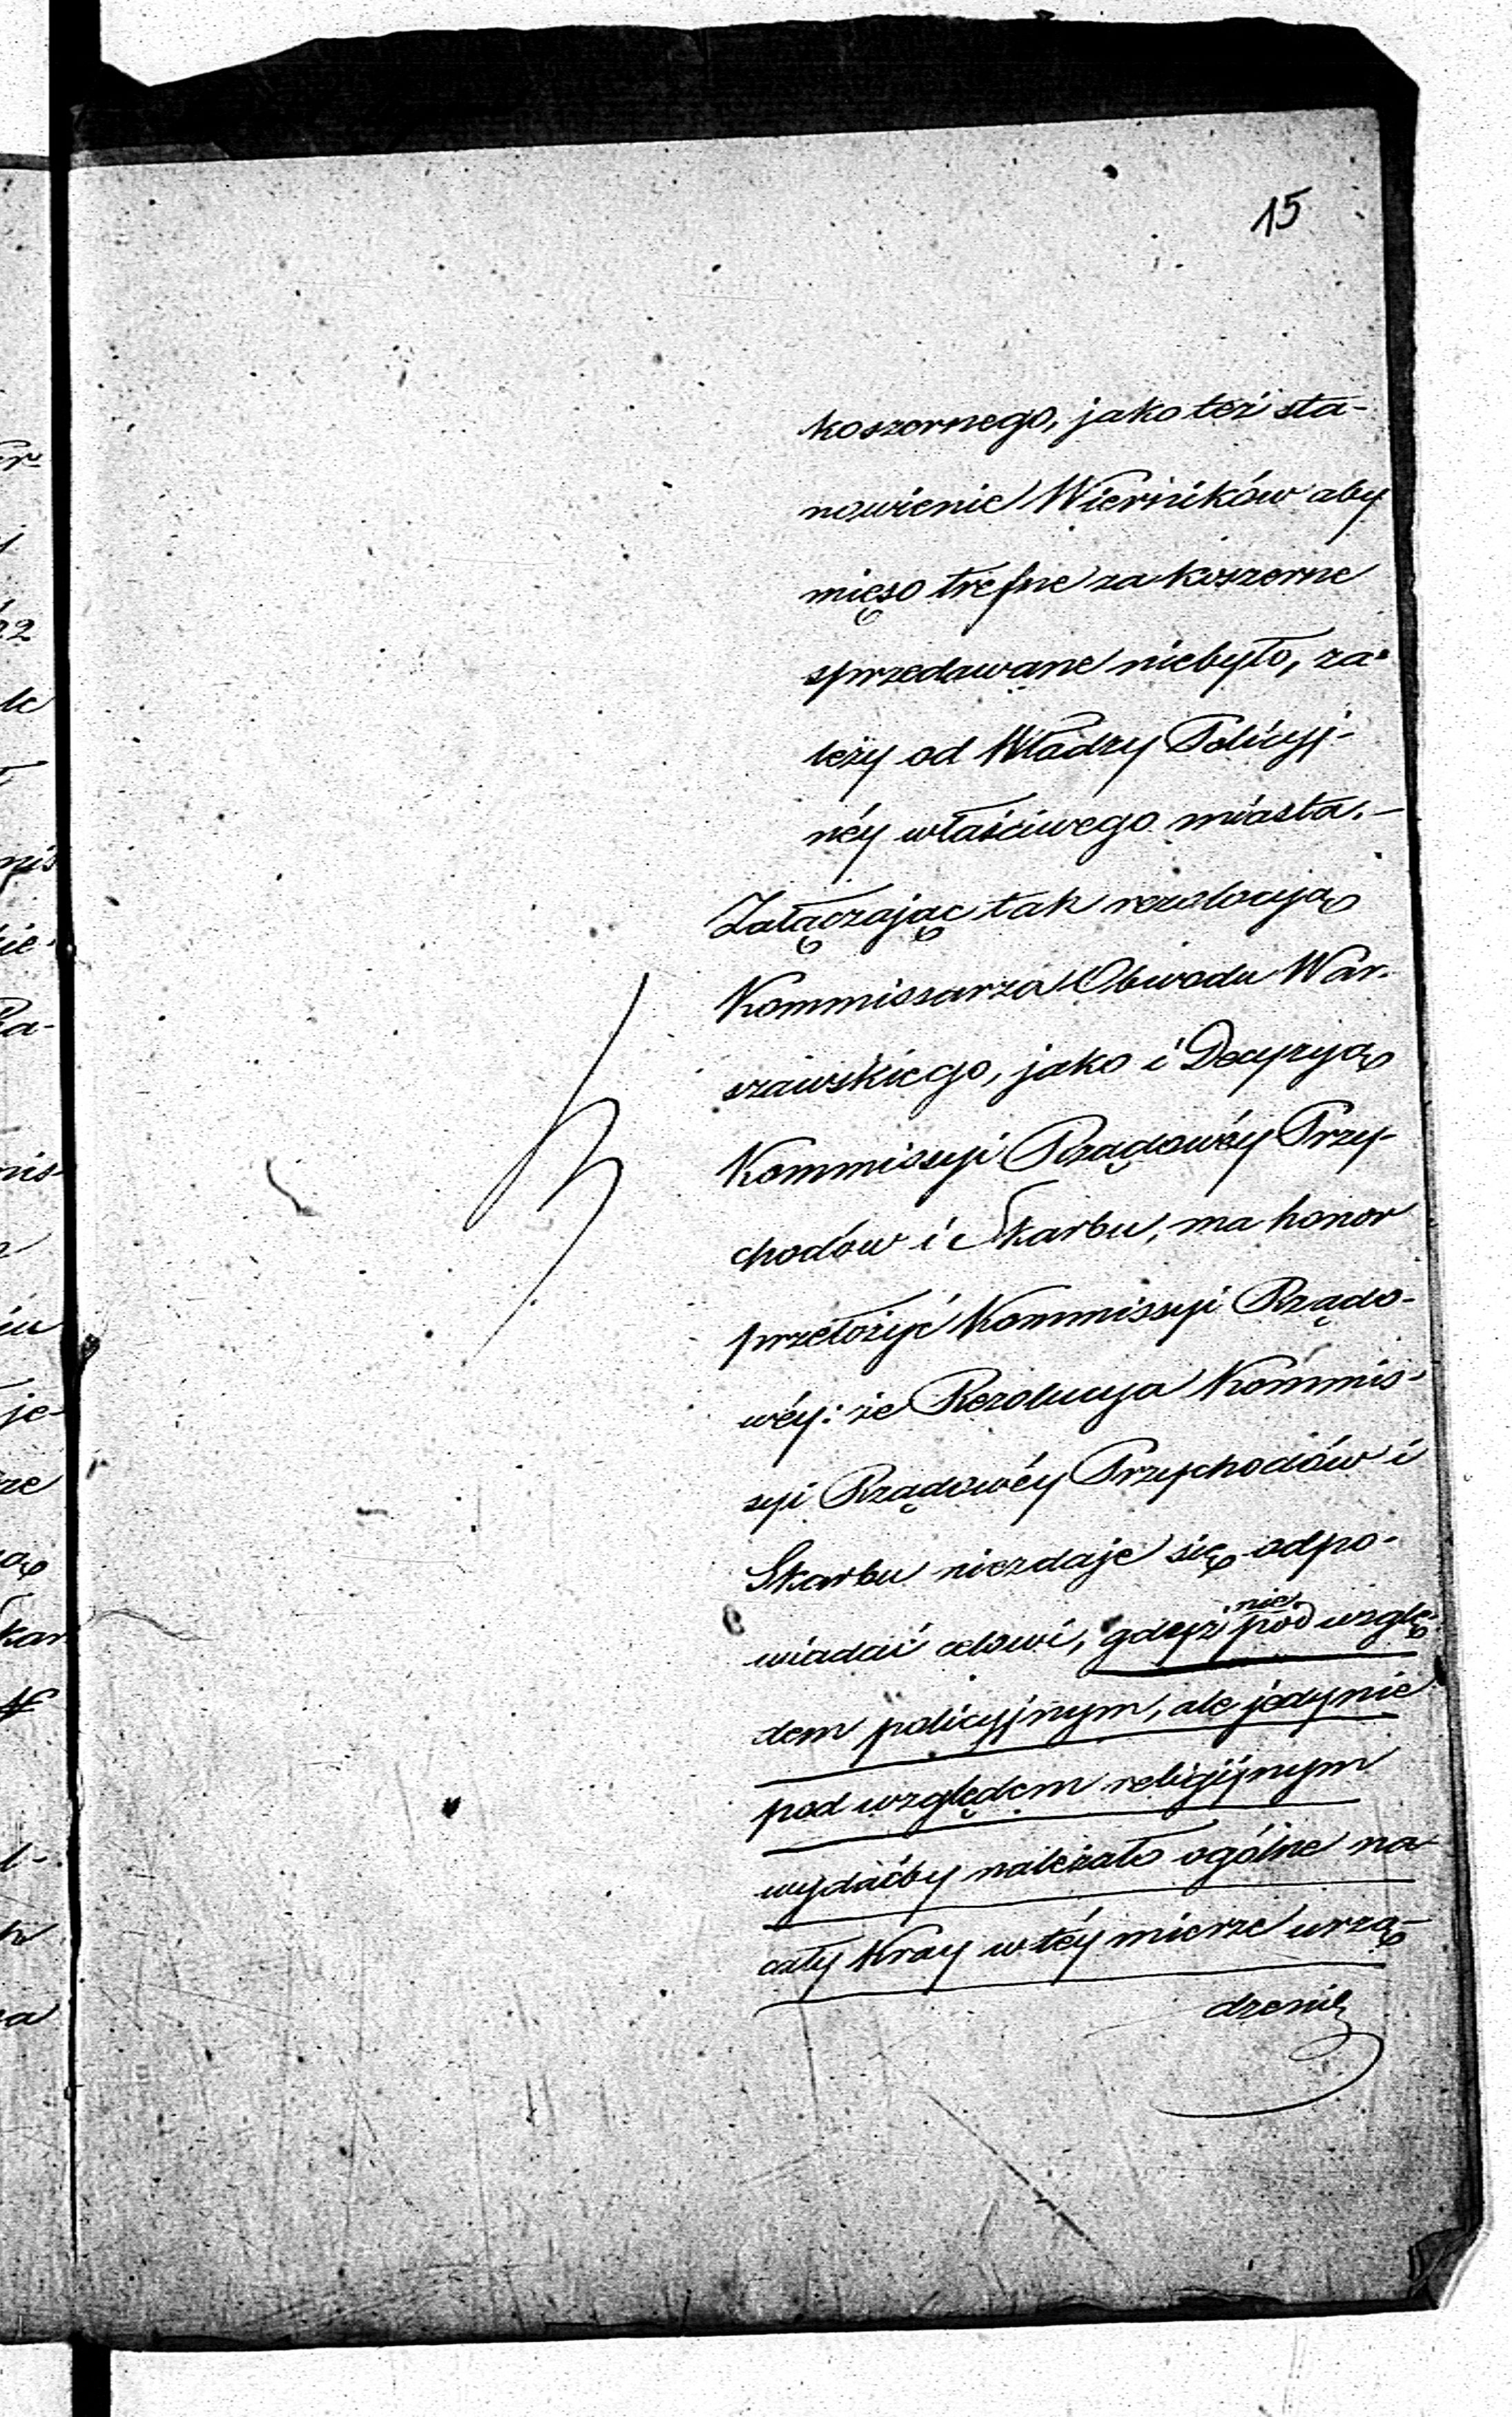 15
koszernego, jako też sta-
nowienie Wierników aby
mięso trefne za koszerne
sprzedawane niebyło, za-
leży od Władzy Policyj-
néy właściwego miasta.—
Załączając tak rezolucyją
Kommissarza Obwodu War-
szawskiego, jako i Decyzyją
Kommissyi Rządowéy Przy-
chodów i Skarbu, ma honor
przełożyć Kommissyi Rządo-
wéy: że Rezolucyja Kommis-
syi Rządowéy Przychodów i
Skarbu niezdaje się odpo-
wiadać celowi, gdyż nie pod wzglę-
dem policyjnym, ale jedynie
pod względem religijnym
wydaćby należało ogólne na
cały Kray w téy mierze urzą-
dzenie